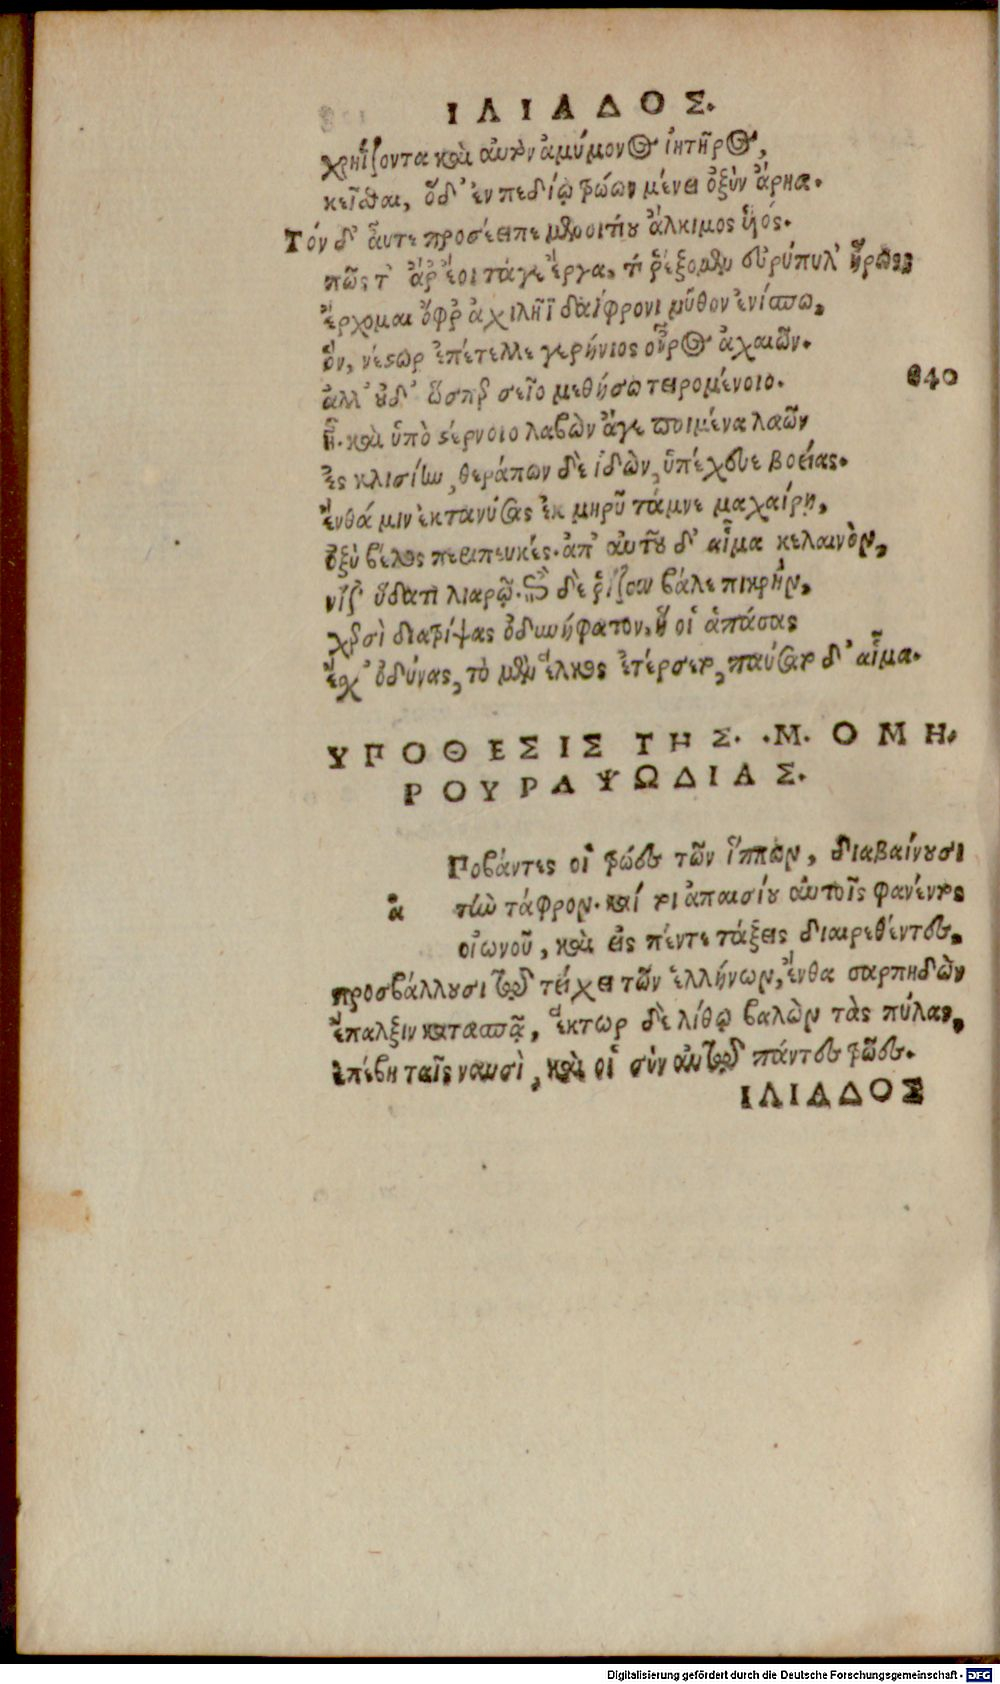 ΙΛΙΑΔΟΣ.
χρηΐζοντα καὶ αὐτὸν ἀμύμονος ἰητῆρος,
κεῖσθαι, ὅδ' ἐν πεδίῳ τρώων μένει ὀξὺν ἄρηα.
Τόν δ' αὖτε προσέειπε μενοιτίου ἄλκιμος ὑιός.
πῶς τ' ἄρ ἔοι τάγε ἔργα, τί ῥέξομεν εὐρύπυλ' ἥρως;
ἔρχομαι ὄφρ ἀχιλῆϊ δαΐφρονι μῦθον ἐνίσπω,
ὃν, νέστωρ ἐπέτελλε γερήνιος οὖρος ἀχαιῶν.
ἀλλ' οὐδ' ὥσπερ σεῖο μεθήσω τειρομένοιο.
640
ἦ. καὶ ὑπὸ στέρνοιο λαβὼν ἄγε ποιμένα λαῶν
ἐς κλισίην, θεράπων δὲ ἰδὼν, ὑπέχευε βοείας.
ἔνθά μιν ἐκτανύσας ἐκ μηροῦ τάμνε μαχαίρῃ,
ὀξὺ βέλος περιπευκές. ἀπ' αὐτοῦ δ' αἷμα κελαινὸν,
νίζ' ὕδατι λιαρῷ. ἐπὶ δὲ ῥίζαν βάλε πικρὴν,
χερσὶ διατρίψας ὀδυνήφατον, ἥ οἱ ἁπάσας
ἔσχ' ὀδύνας, τὸ μὲν ἕλκος ἐτέρσετο, παύσατο δ' αἷμα.
ΥΠΟΘΕΣΙΣ ΤΗΣ. .Μ. ΟΜΗ.
ΡΟΥ ΡΑΨΩΔΙΑΣ.
Ποβάντες οἱ τρῶες τῶν ἵππων, διαβαίνουσι
ἀ τὴν τάφρον. καί τι ἀπαισίου αὐτοῖς φανέντος
οἰωνοῦ, καὶ εἰς πέντε τάξεις διαιρεθέντες,
προσβάλλουσι τῷ τείχει τῶν ἑλλήνων, ἔνθα σαρπηδὼν
ἔπαλξιν κατασπᾷ, ἕκτωρ δὲ λίθῳ βαλὼν τὰς πύλας,
ἐπέβη ταῖς ναυσὶ, καὶ οἱ σὺν αὐτῷ πάντες τρῶες.
ΙΛΙΑΔΟΣ
Digitalisierung gefördert durch die Deutsche Forschungsgemeinschaft · DFG